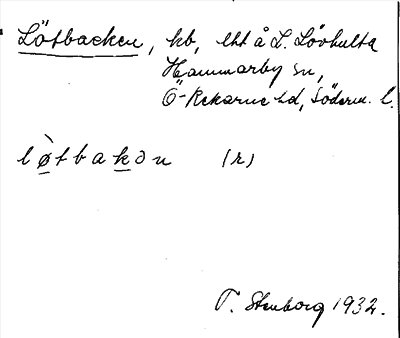 Lötbacken, kb, lht å L. Lövhulta
Hammarby sn,
Ö-Rekarne hd, Söderm. l.
lø̀tbakən (r)
P. Stenborg 1932.